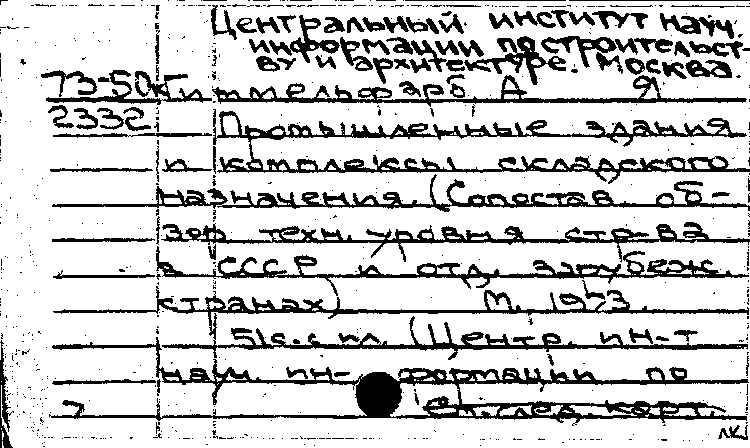 Центральный институт науч.
информации по строительст-
ву и архитектуре. Москва.
73-50к Гиммельфарб, А Я
2332 Промышленные здания
и комплексы складского
назначения. (Сопостав. об-
зор техн. уровня стр-ва
в СССР и отд. зарубеж.
странах) М., 1973.
51с. с ил. (Центр. ин-т
науч. ин- формации по
7 См. след. карт.
лк.